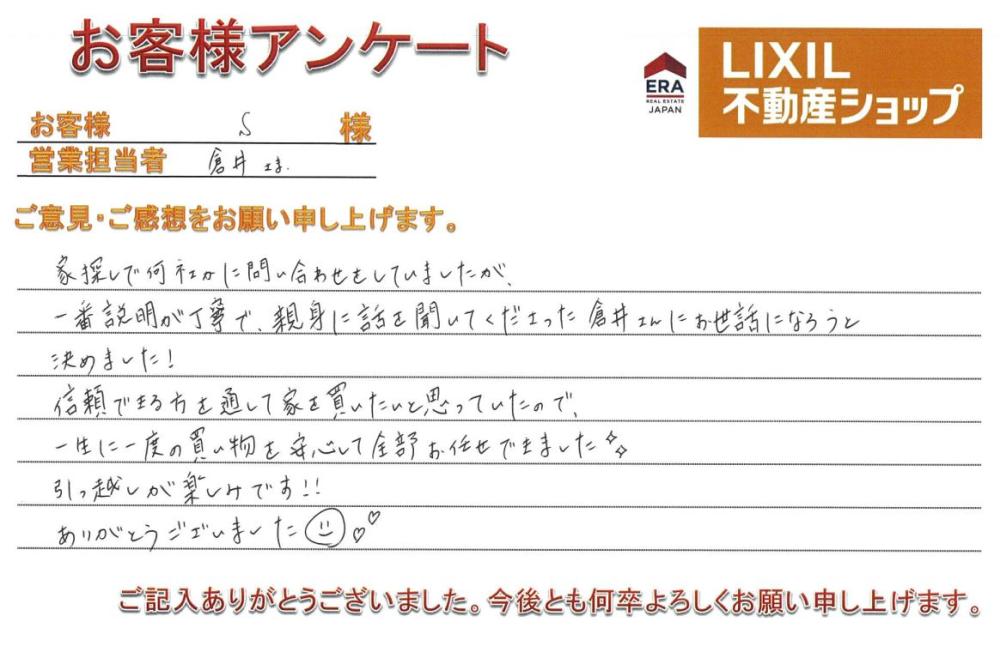 お客様アンケート
ERA
REAL ESTATE
JAPAN
LIXIL
不動産ショップ
お客様 S 様
営業担当者 倉井さま.
ご意見・ご感想をお願い申し上げます。
家探しで何社かに問い合わせをしていましたが、
一番説明が丁寧で、親身に話を聞いてくださった倉井さんにお世話になろうと
決めました!
信頼できる方を通して家を買いたいと思っていたので、
一生に一度の買い物を安心して全部お任せできました
引っ越しが楽しみです!!
ありがとうございました
ご記入ありがとうございました。今後とも何卒よろしくお願い申し上げます。